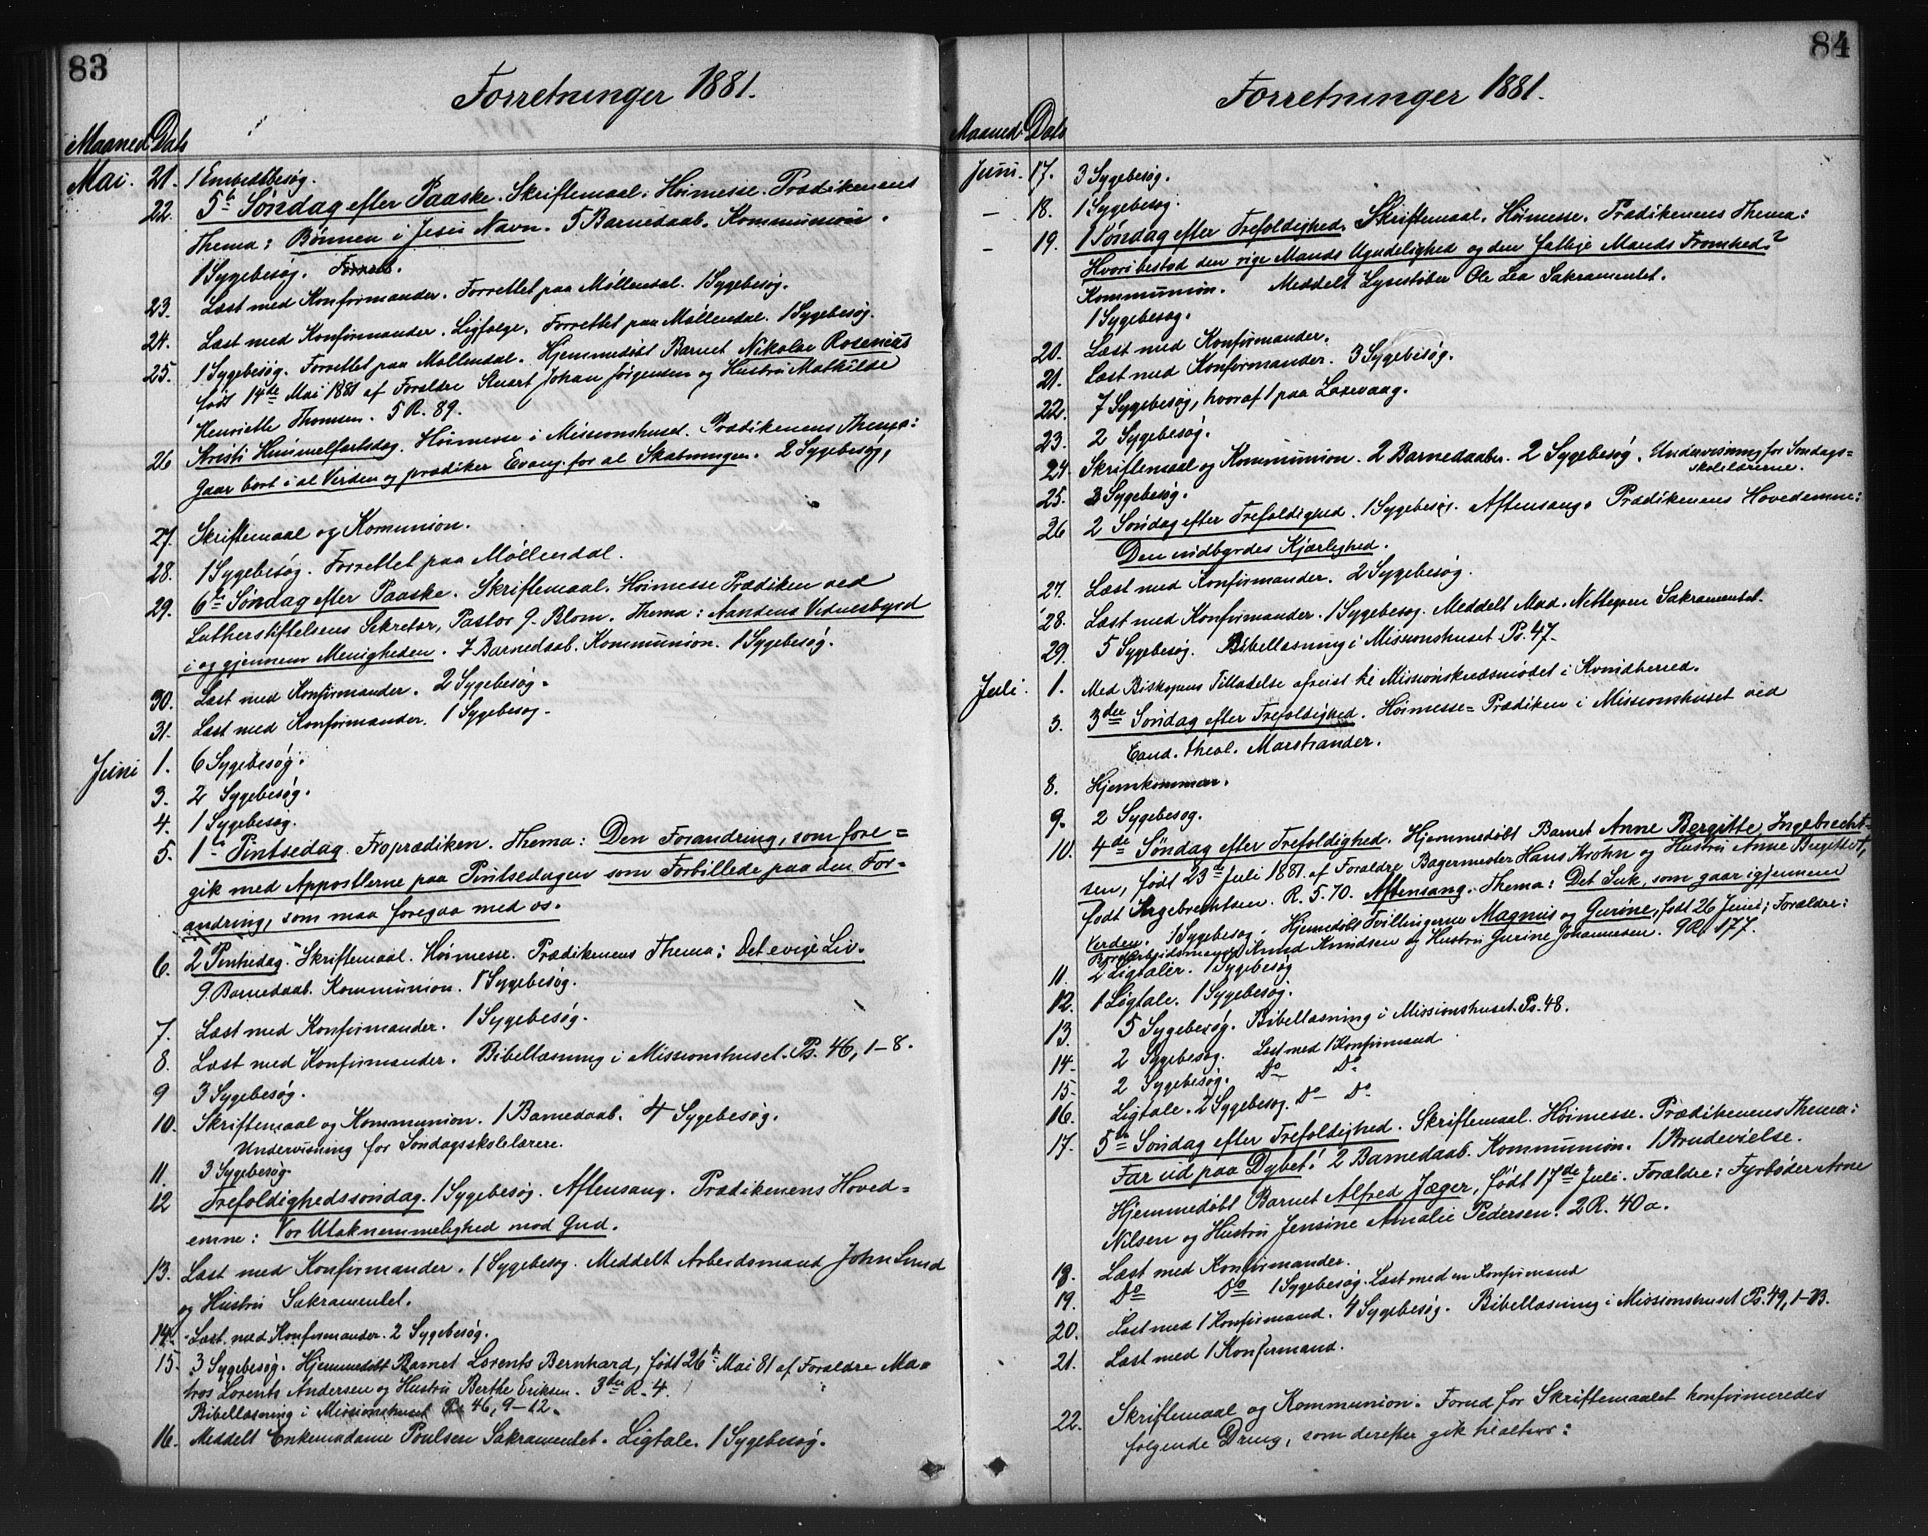 83
Forretninger 1881.
Maaned Dato
Mai. 21. 1 Embedsbesøg.
22. 5te Søndag efter Paaske. Skriftemaal. Høimesse. Prædikenens
Thema: Bønnen i Jesu Navn. 5 Barnedaab. Kommunion.
1 Sygebesøg.
23. Læst med Konfirmander. Forrettet paa Møllendal. 1 Sygebesøg.
24. Læst med Konfirmander. Ligfølge. Forrettet paa Møllendal. 1 Sygebesøg.
25. 1 Sygebesøg. Forrettet paa Møllendal. Hjemmedøbt Barnet Nikolai Rosenius
født 14de Mai 1881 af Forældre Stuert Johan Jørgensen og Hustru Mathilde
Henriette Thomsen. 5 R. 89.
26 Kristi Himmelfartsdag. Høimesse i Missionshuset. Prædikenens Thema:
Gaar bort i al Verden og prædiker Evang. for al Skabningen. 2 Sygebesøg.
27. Skriftemaal og Komunion.
28. 1 Sygebesøg. Forrettet paa Møllendal.
29. 6te Søndag efter Paaske. Skriftemaal. Høimesse Prædiken ved
Lutherstiftelsens Sekretær, Pastor G. Blom. Thema: Aandens Vidnesbyrd
i og gjennem Menigheden. 7 Barnedaab. Kommunion. 1 Sygebesøg.
30. Læst med Konfirmander. 2 Sygebesøg.
31. Læst med Konfirmander. 1 Sygebesøg.
Juni 1. 6 Sygebesøg.
3. 2 Sygebesøg.
4. 1 Sygebesøg.
5. 1ste Pintsedag. Froprædiken. Thema: Den Forandring, som fore=
gik med Appostlerne paa Pintsedagen som Forbillede paa den For=
andring, som maa foregaa med os.
6. 2 Pintsedag. Skriftemaal. Høimesse. Prædikenens Thema: Det evige Liv.
9 Barnedaab. Kommunion. 1 Sygebesøg.
7. Læst med Konfirmander. 1 Sygebesøg.
8. Læst med Konfirmander. Bibellæsning i Missionshuset. Ps. 46, 1-8.
9 3 Sygebesøg.
10. Skriftemaal og Kommunion. 1 Barnedaab. 4 Sygebesøg.
Undervisning for Søndagsskolelærere.
11. 3 Sygebesøg.
12 Trefoldighedssøndag. 1 Sygebesøg. Aftensang. Prædikenens Hoved=
emne: Vor Utaknemmelighed mod Gud.
13. Læst med Konfirmander. 1 Sygebesøg. Meddelt Arbeidsmand John Lund
og Hustru Sakramentet.
14. Læst med Konfirmander. 2 Sygebesøg.
15. 3 Sygebesøg. Hjemmedøbt Barnet Lorents Bernhard, født 26de Mai 81 af Forældre Ma=
tros Lorents Andersen og Hustru Berthe Eriksen. 3die R. 4.
Bibellæsning i Missionshuset Ps 46, 9-12.
16. Meddelt Enkemadame Poulsen Sakramentet. Ligtale. 1 Sygebesøg.
84
Forretninger 1881.
Maaned Dato
Juni. 17. 3 Sygebesøg.
— 18. 1 Sygebesøg.
— 19. 1 Søndag efter Trefoldighed. Skriftemaal. Høimesse. Prædikenens Thema:
Hvori bestod den rige Mands Ugudelighed og den fattige Mands Fromhed?
Kommunion. Meddelt Lysestøber Ole Lea Sakramentet.
1 Sygebesøg.
20. Læst med Konfirmander.
21. Læst med Konfirmander. 3 Sygebesøg.
22. 7 Sygebesøg, hvoraf 1 paa Laxevaag.
23. 2 Sygebesøg.
24. Skriftemaal og Kommunion. 2 Barnedaaber. 2 Sygebesøg. Undervisning for Søndags=
skolelærerne.
25. 3 Sygebesøg.
26 2 Søndag efter Trefoldighed. 1 Sygebesøg. Aftensang. Prædikenens Hovedemne:
Den indbyrdes Kjærlighed.
27. Læst med Konfirmander. 2 Sygebesøg.
28. Læst med Konfirmander. 1 Sygebesøg. Meddelt Mad. Sakramentet.
29. 5 Sygebesøg. Bibellæsning i Missionshuset Ps. 47.
Juli. 1. Med Biskopens Tilladelse afreist til Missionskredsmødet i Kvindherred.
3. 3die Søndag efter Trefoldighed. Høimesse= Prædiken i Missionshuset ved
Cand. theol. Marstrander.
8. Hjemkommen.
9. 2 Sygebesøg.
10. 4de Søndag efter Trefoldighed. Hjemmedøbt Barnet Anne Bergitte Ingebrecht=
sen, født 23de Juli 1881 af Forældre Bagermester Hans Krohn og Hustru Anne Birgitte
født Ingebrechtsen. R. 5. 70. Aftensang. Thema: Det Suk, som gaar igjennem
Verden. 1 Sygebesøg. Hjemdøbt Tvillingerne Magnus og Gurine, født 26 Juni; Forældre:
Arbeidsmand Knud Knudsen og Hustru Gurine Johannesen. 9 R. 177.
11. 2 Ligtaler. 1 Sygebesøg
12. 1 Ligtale. 1 Sygebesøg.
13. 5 Sygebesøg. Bibellæsning i Missionshuset. Ps. 48.
14. 2 Sygebesøg. Læst med 1 Konfirmand
15. 2 Sygebesøg. Do Do
16. Ligtale. 2 Sygebesøg. Do Do
17. 5te Søndag efter Trefoldighed. Skriftemaal. Høimesse. Prædikenens Thema:
Far ud paa Dybet! 2 Barnedaab. Kommunion. 1 Brudevielse.
Hjemmedøbt Barnet Alfred Jæger, født 17de Juli. Forældre: Fyrbøder Arne
Nilsen og Hustru Jensine Amalie Pedersen. 2 R. 40 a.
18. Læst med Konfirmander.
19. Do Do 1 Sygebesøg. Læst med en Konfirmand
20. Læst med 1 Konfirmand. 4 Sygebesøg. Bibellæsning i Missionshuset Ps. 49, 1-13.
21. Læst med 1 Konfirmand.
22. Skriftemaal og Kommunion. Forud for Skriftemaalet konfirmeredes
følgende Dreng, som derefter gik tilalters: